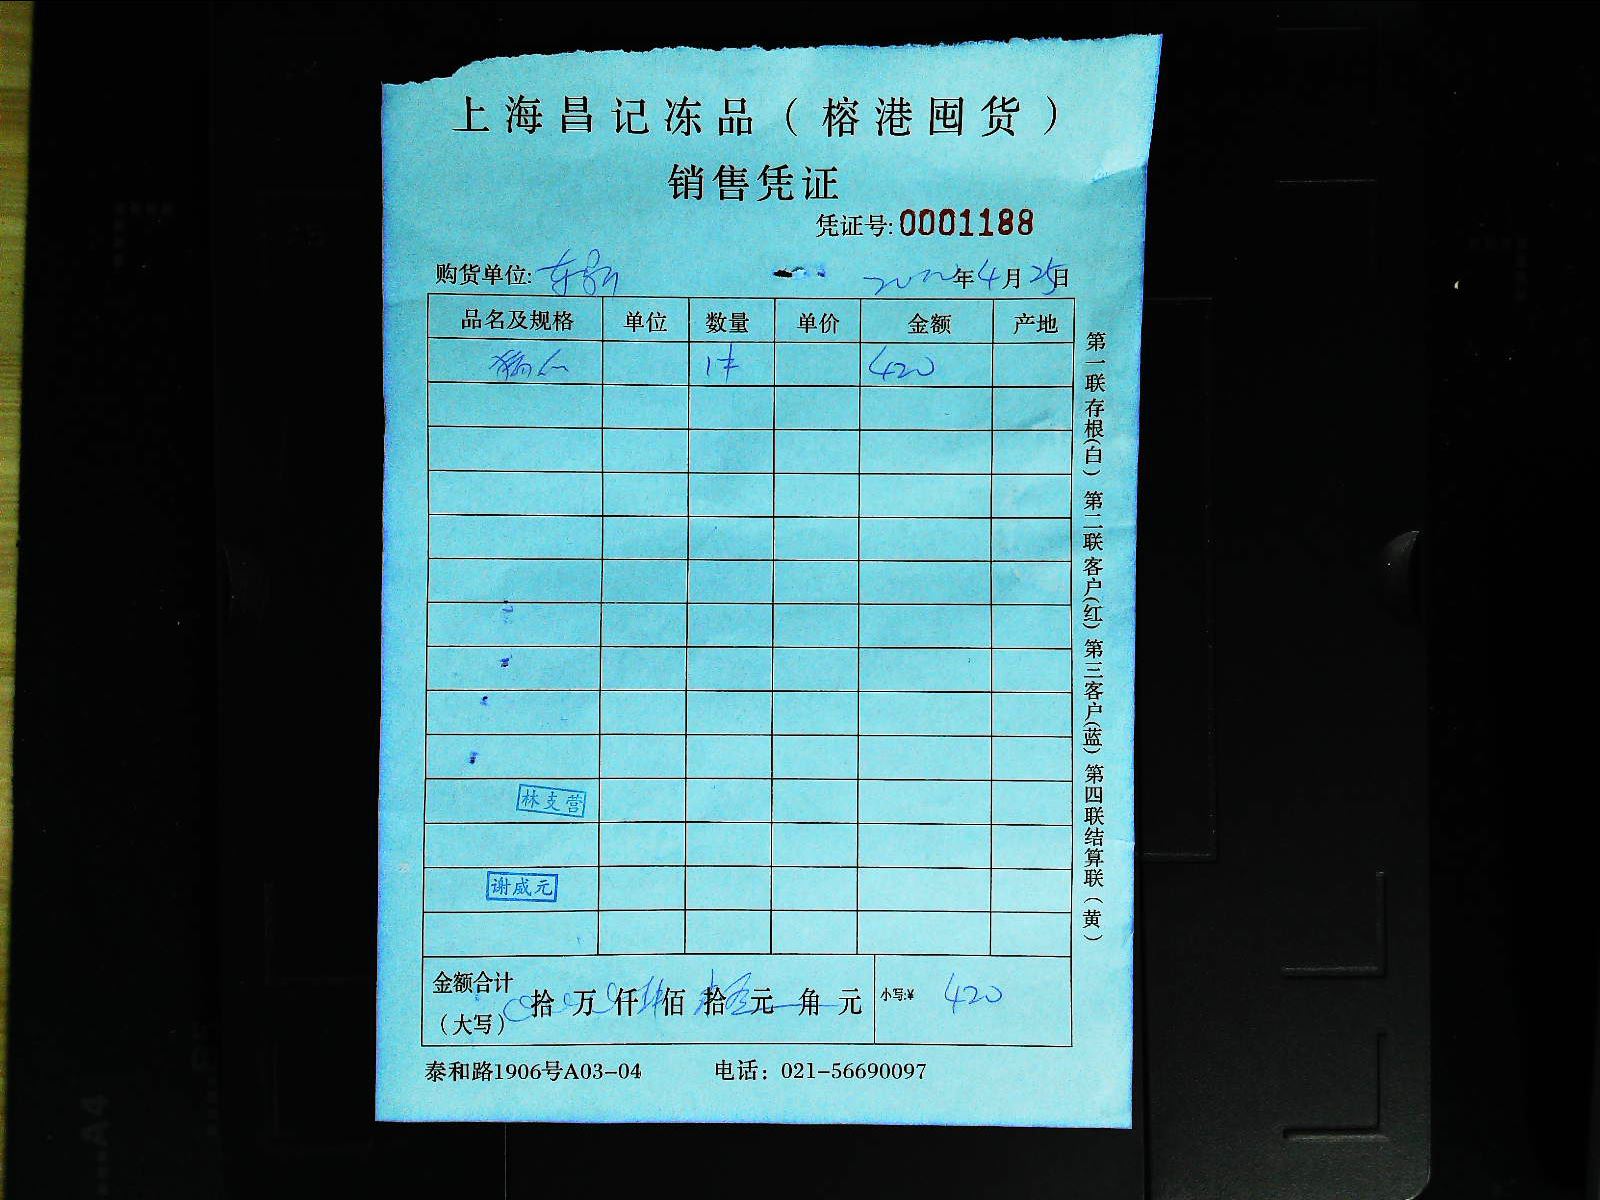 上海昌记冻品（榕港囤货）
销售凭证
凭证号:0001188
购货单位:
2022年4月25日
品名及规格 单位 数量 单价 金额 产地
1件 420
林支营
谢威元
金额合计
（大写） 拾 万 仟 佰 拾 元 角 元 小写:¥ 420
泰和路1906号A03-04 电话：021-56690097
第一联存根(白) 第二联客户(红) 第三客户(蓝) 第四联结算联(黄)
A4